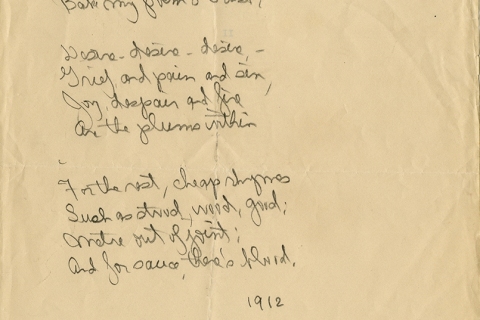 Bake my poem's
Desire - desire - desire, -
Grief and pain and sin,
Joy, despair and fire
Are the plums within
For the rest, cheap rhymes
Such as stood, wood, good;
Metre out of joint;
And for sauce, there's blood.
1912